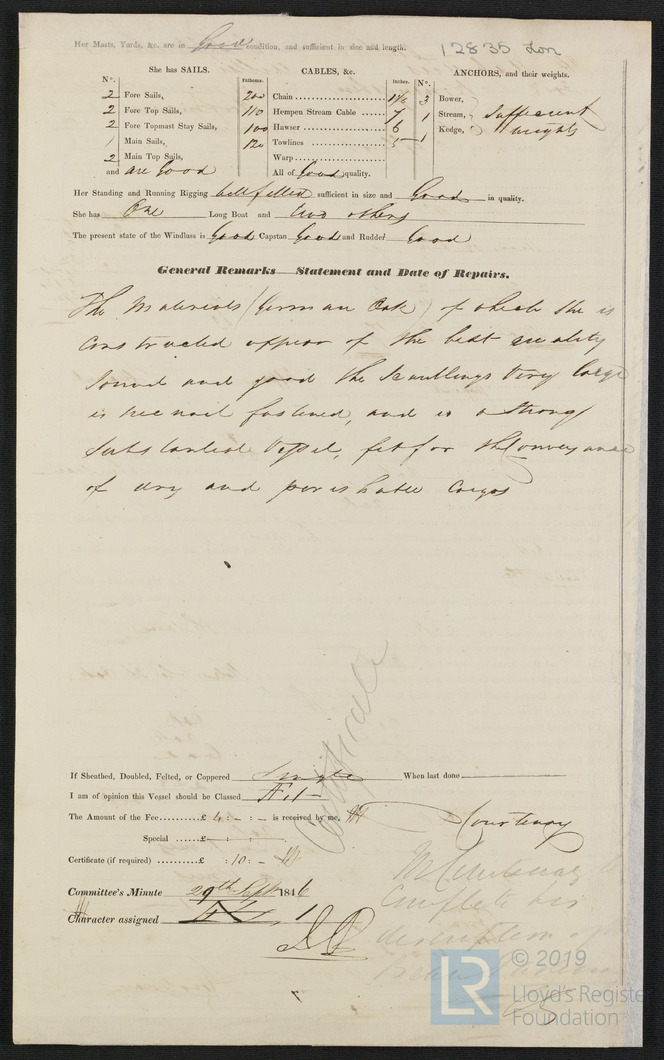 12835 Lon
Her Masts, Yards, &c. are in Good condition, and sufficient in size and length.
She has SAILS.
CABLES, &c.
ANCHORS, and their weights.
N°. Fathoms. Inches. N°.
2 Fore Sails, 200 Chain 1 1/8 3 Bower,
2 Fore Top Sails, 110 Hempen Stream Cable 7 1 Stream, Sufficient
2 Fore Topmast Stay Sails, 100 Hawser 6 1 Kedge, weights
1 Main Sails, 120 Towlines 5
2 Main Top Sails, Warp
and are Good All of Good quality.
Her Standing and Running Rigging well fitted sufficient in size and Good in quality.
She has One Long Boat and two others
The present state of the Windlass is Good Capstan Good and Rudder Good
General Remarks—Statement and Date of Repairs.
The Materials (German Oak) of which she is
constructed appear of the best quality
Sound and good the Scantlings Very large
is treenail fastened, and is a strong
Substantial Vessel, fit for the Conveyance
of dry and perishable Cargos
Certificate
If Sheathed, Doubled, Felted, or Coppered Single When last done
I am of opinion this Vessel should be Classed
The Amount of the Fee £ 4 : - : - is received by me,
Courtenay
Special £
Certificate (if required) £ : 10 : -
Committee's Minute 29th Sept 1846
Character assigned 1
Mr Courtenay to
Complete his
description of
© 2019
LR
Lloyd's Register
Foundation